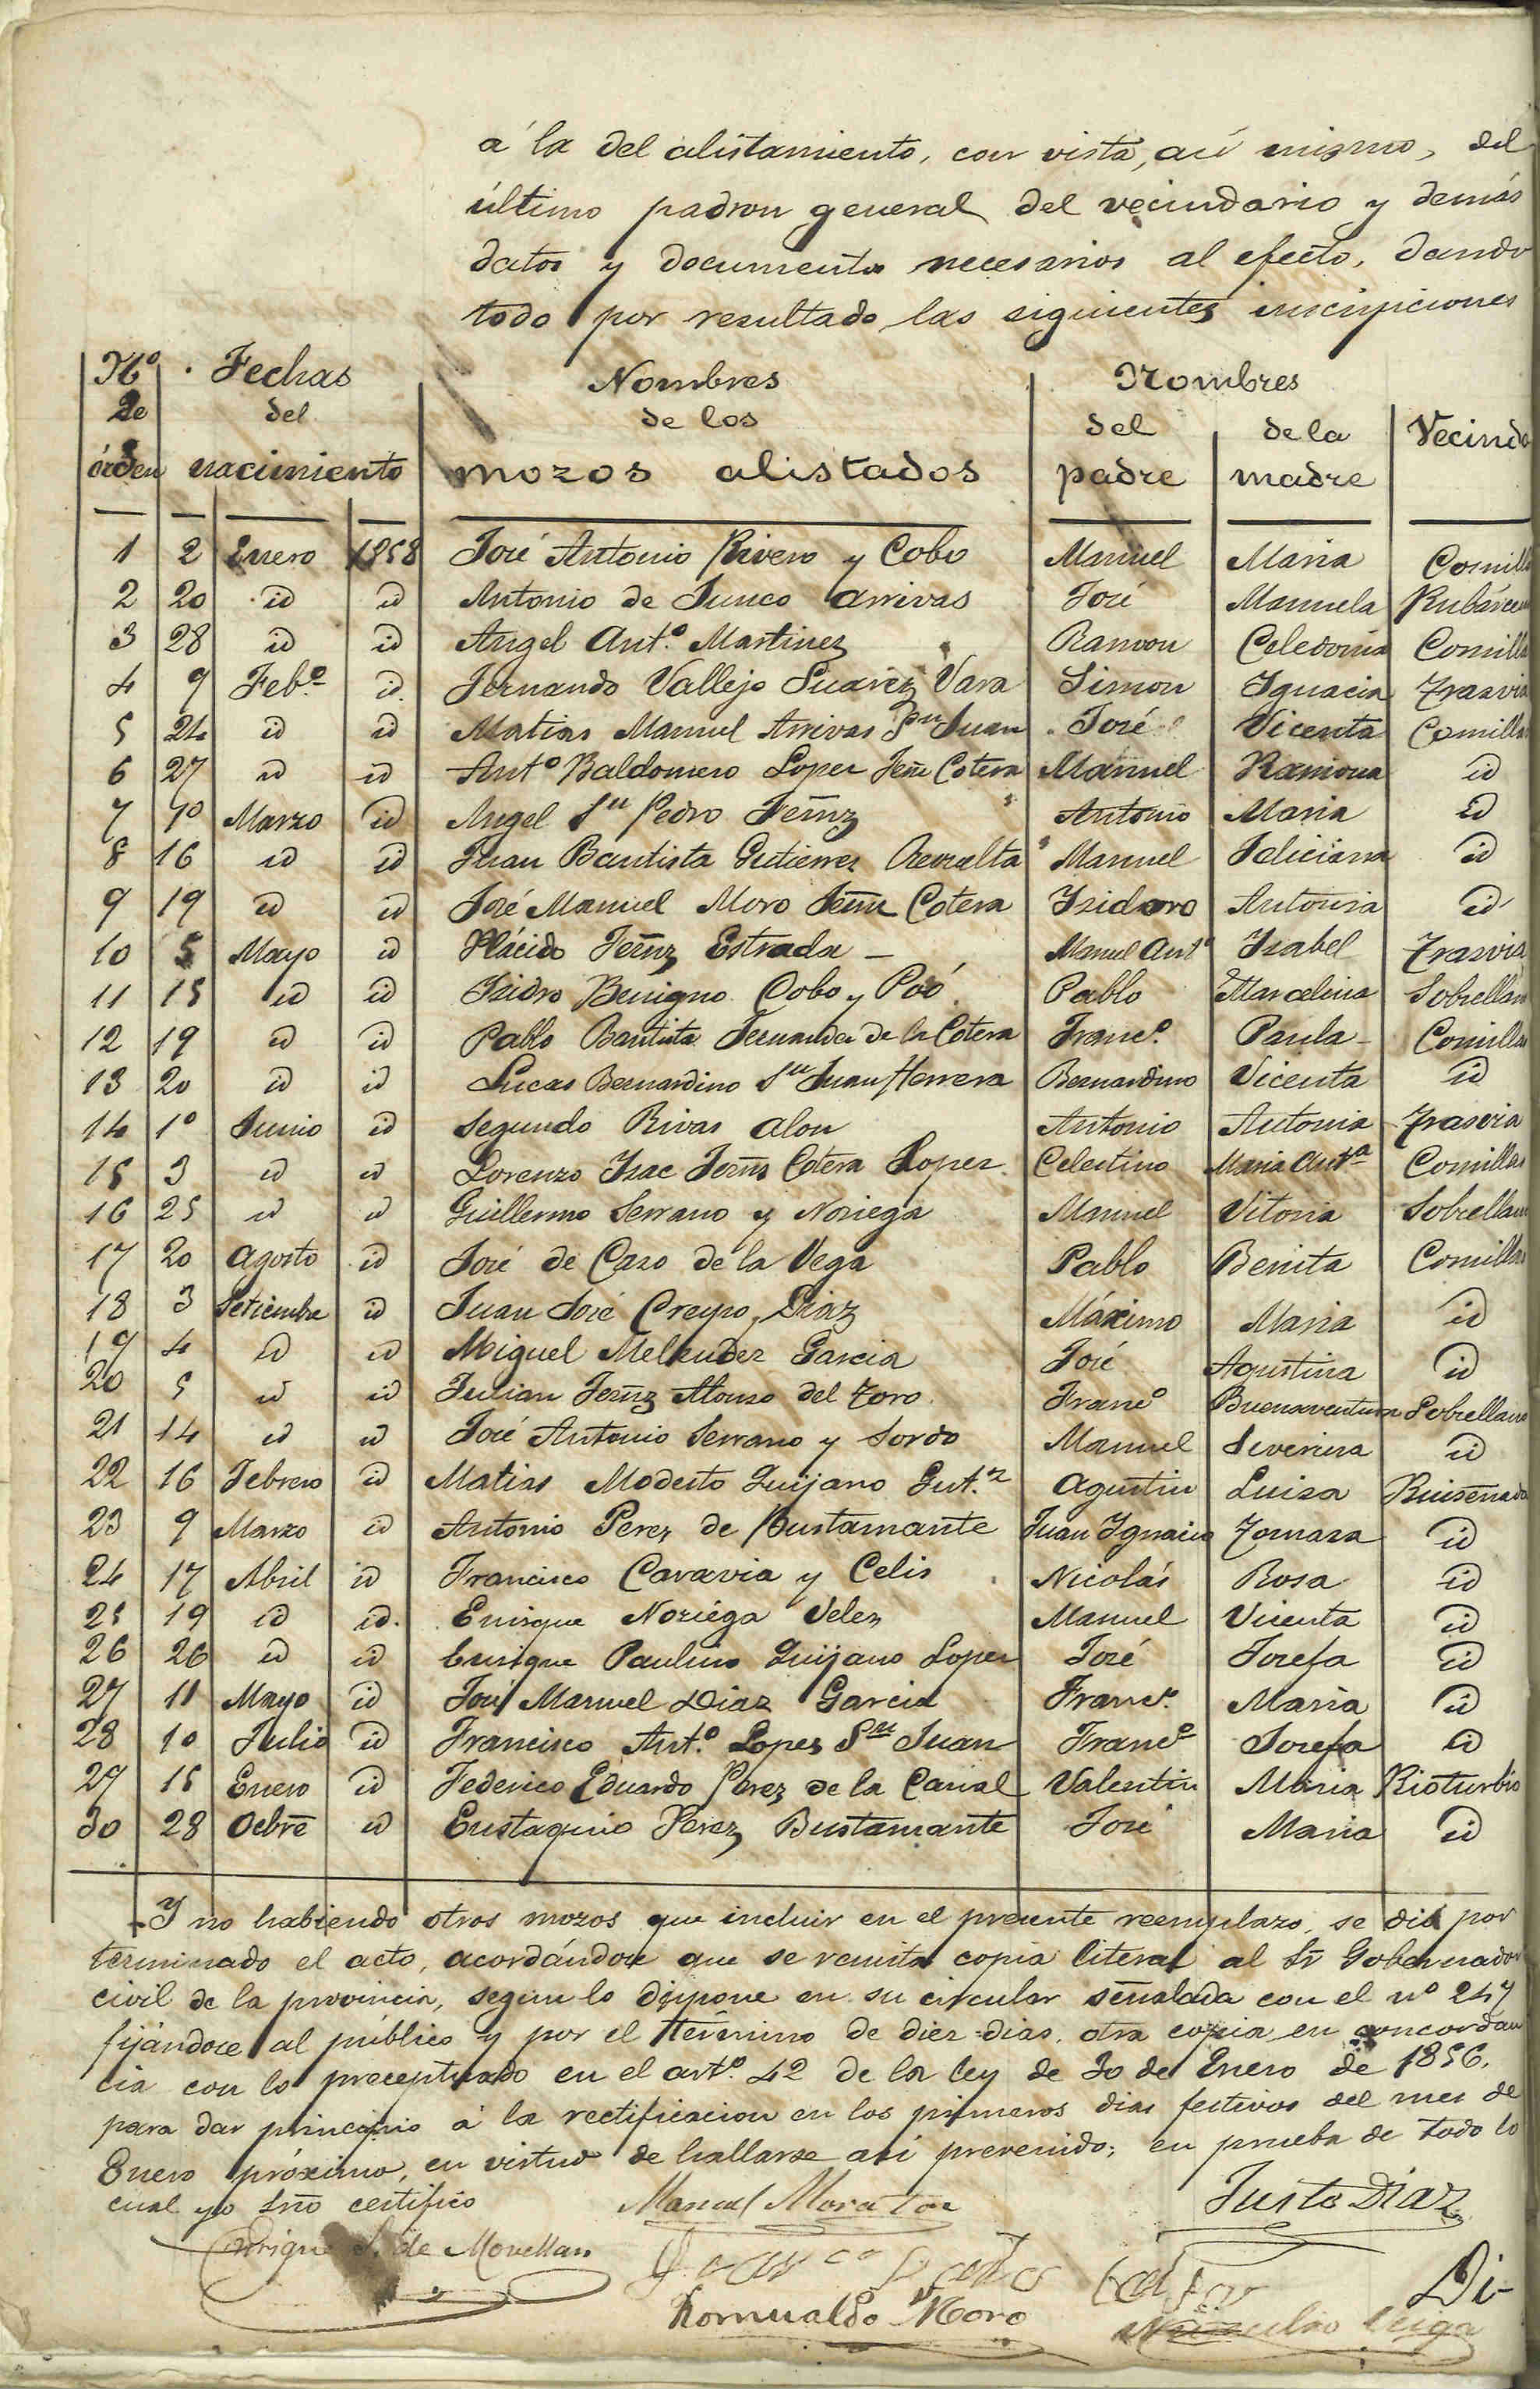 á la del alistamiento, con vista, así mismo, del
último padron general del vecindario y demás
datos y documentos necesarios al efecto, dando
todo por resultado las siguientes inscripciones
Nº de órden Fechas del nacimiento Nombres de los mozos alistados Nombres del padre de la madre Vecinda
1 2 Enero 1858 José Antonio Rivero y Cobo Manuel Maria Comilla
2 20 id id Antonio de Junco Arrivas José Manuela Rubárcena
3 28 id id Angel Ant.º Martinez Ramon Celedonia Comilla
4 9 Feb.º id. Fernando Vallejo Suarez Vara Simon Ygnacia Trasvia
5 24 id id Matias Manuel Arrivas Sn Juan José Vicenta Comillas
6 27 id id Antº Baldomero Lopez Ferñz Cotera Manuel Ramona id
7 10 Marzo id Angel Sn Pedro Ferñz Antonio Maria id
8 16 id id Juan Bautista Gutierrez Manuel Feliciana id
9 19 id id José Manuel Moro Ferñz Cotera Ysidoro Antonia id
10 5 Mayo id Plácido Ferñz Estrada Manuel Antº Ysabel Trasvia
11 15 id id Ysidro Benigno Cobo y Poó Pablo Marcelina Sobrellano
12 19 id id Pablo Bautista Fernandez de la Cotera Franc.º Paula Comillas
13 20 id id Lucas Bernardino Sn Juan Herrera Bernardino Vicenta id
14 1º Junio id Segundo Rivas Antonio Antonia Trasvia
15 3 id id Lorenzo Ysac Ferñz Cotera Lopez Celestino Maria Antª Comillas
16 25 id id Guillermo Serrano y Noriega Manuel Vitoria Sobrellano
17 20 Agosto id José de Caso de la Vega Pablo Benita Comillas
18 3 Setiembre id Juan José Crespo Diaz Máximo Maria id
19 4 id id Miguel Melendez Garcia José Agustina id
20 5 id id Julian Ferñz Alonso del Toro Francº Buenaventura Sobrellano
21 14 id id José Antonio Serrano y Sordo Manuel Severina id
22 16 Febrero id Matias Modesto Quijano Gut.z Agustin Luisa Ruiseñada
23 9 Marzo id Antonio Perez de Bustamante Juan Ygnacio Tomasa id
24 17 Abril id Francisco Caravia y Celis Nicolás Rosa id
25 19 id id. Enrique Noriega Velez Manuel Vicenta id
26 26 id id Enrique Paulino Quijano Lopez José Josefa id
27 11 Mayo id José Manuel Diaz Garcia Franc.º Maria id
28 10 Julio id Francisco Ant.º Lopez Sn Juan Francº Josefa id
29 15 Enero id Federico Eduardo Perez de la Canal Valentin Maria Rioturbio
30 28 Ocbre id Eustaquio Perez Bustamante José Maria id
Y no habiendo otros mozos que incluir en el presente reemplazo, se dió por
terminado el acto, acordándose que se remita copia literal al Sr Gobernador
civil de la provincia, segun lo dispone en su circular señalada con el nº 247
fijándose al público y por el término de diez dias, otra copia en concordan
cia con lo preceptuado en el artº. 42 de la ley de 30 de Enero de 1856,
para dar principio á la rectificacion en los primeros dias festivos del mes de
Enero próximo, en virtud de hallarse así prevenido; en prueba de todo lo
cual yo Srio certifico
Manuel Morante Justo Diaz
Enrique S. de Movellan
Di-
Romualdo Moro